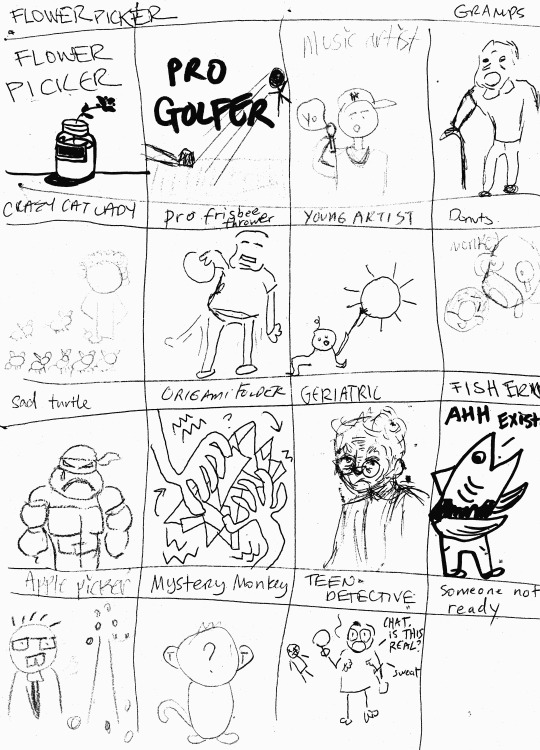 FLOWERPICKER
GRAMPS
FLOWER
PICKER
PRO
GOLFER
Music artist
Yo
CRAZY CAT LADY
Pro frisbee
thrower
YOUNG ARTIST
Donuts
Monkey
Sad turtle
ORIGAMI FOLDER
GERIATRIC
AHH EXIST
Apple picker
Mystery Monkey
TEEN-
DETECTIVE
Someone not
ready
?
CHAT,
IS THIS
REAL?
sweat